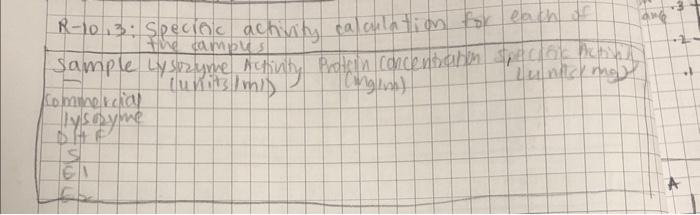 R-10.3: Specific activity calculation for each of
the samples
Sample Lysozyme Activity Protein Concentration Specific Activity
(units/ml) (mg/ml) (units/mg)
Commercial
lysozyme
S
E1
E2
.3
.2
.1
A